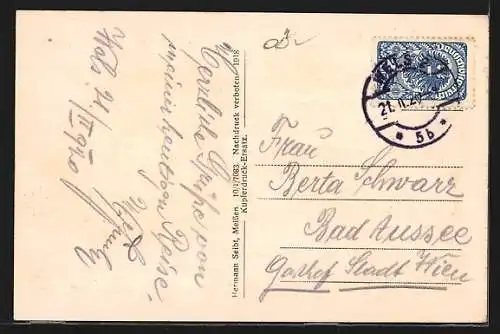 Wels 21/II 1920
Herzliche Grüße von
meiner heutigen Reise.
Hermann Seibt, Meißen 10,1/7083. Nachdruck verboten. 1918
Kupferdruck-Ersatz.
WELS 2
21.II.20
* 5b *
Frau
Berta Schwarz
Bad Aussee
Gasthof Stadt Wien